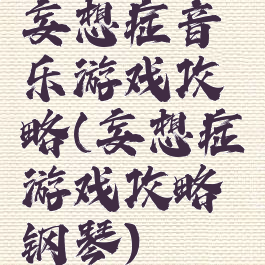 妄想症音
乐游戏攻
略(妄想症
游戏攻略
钢琴)